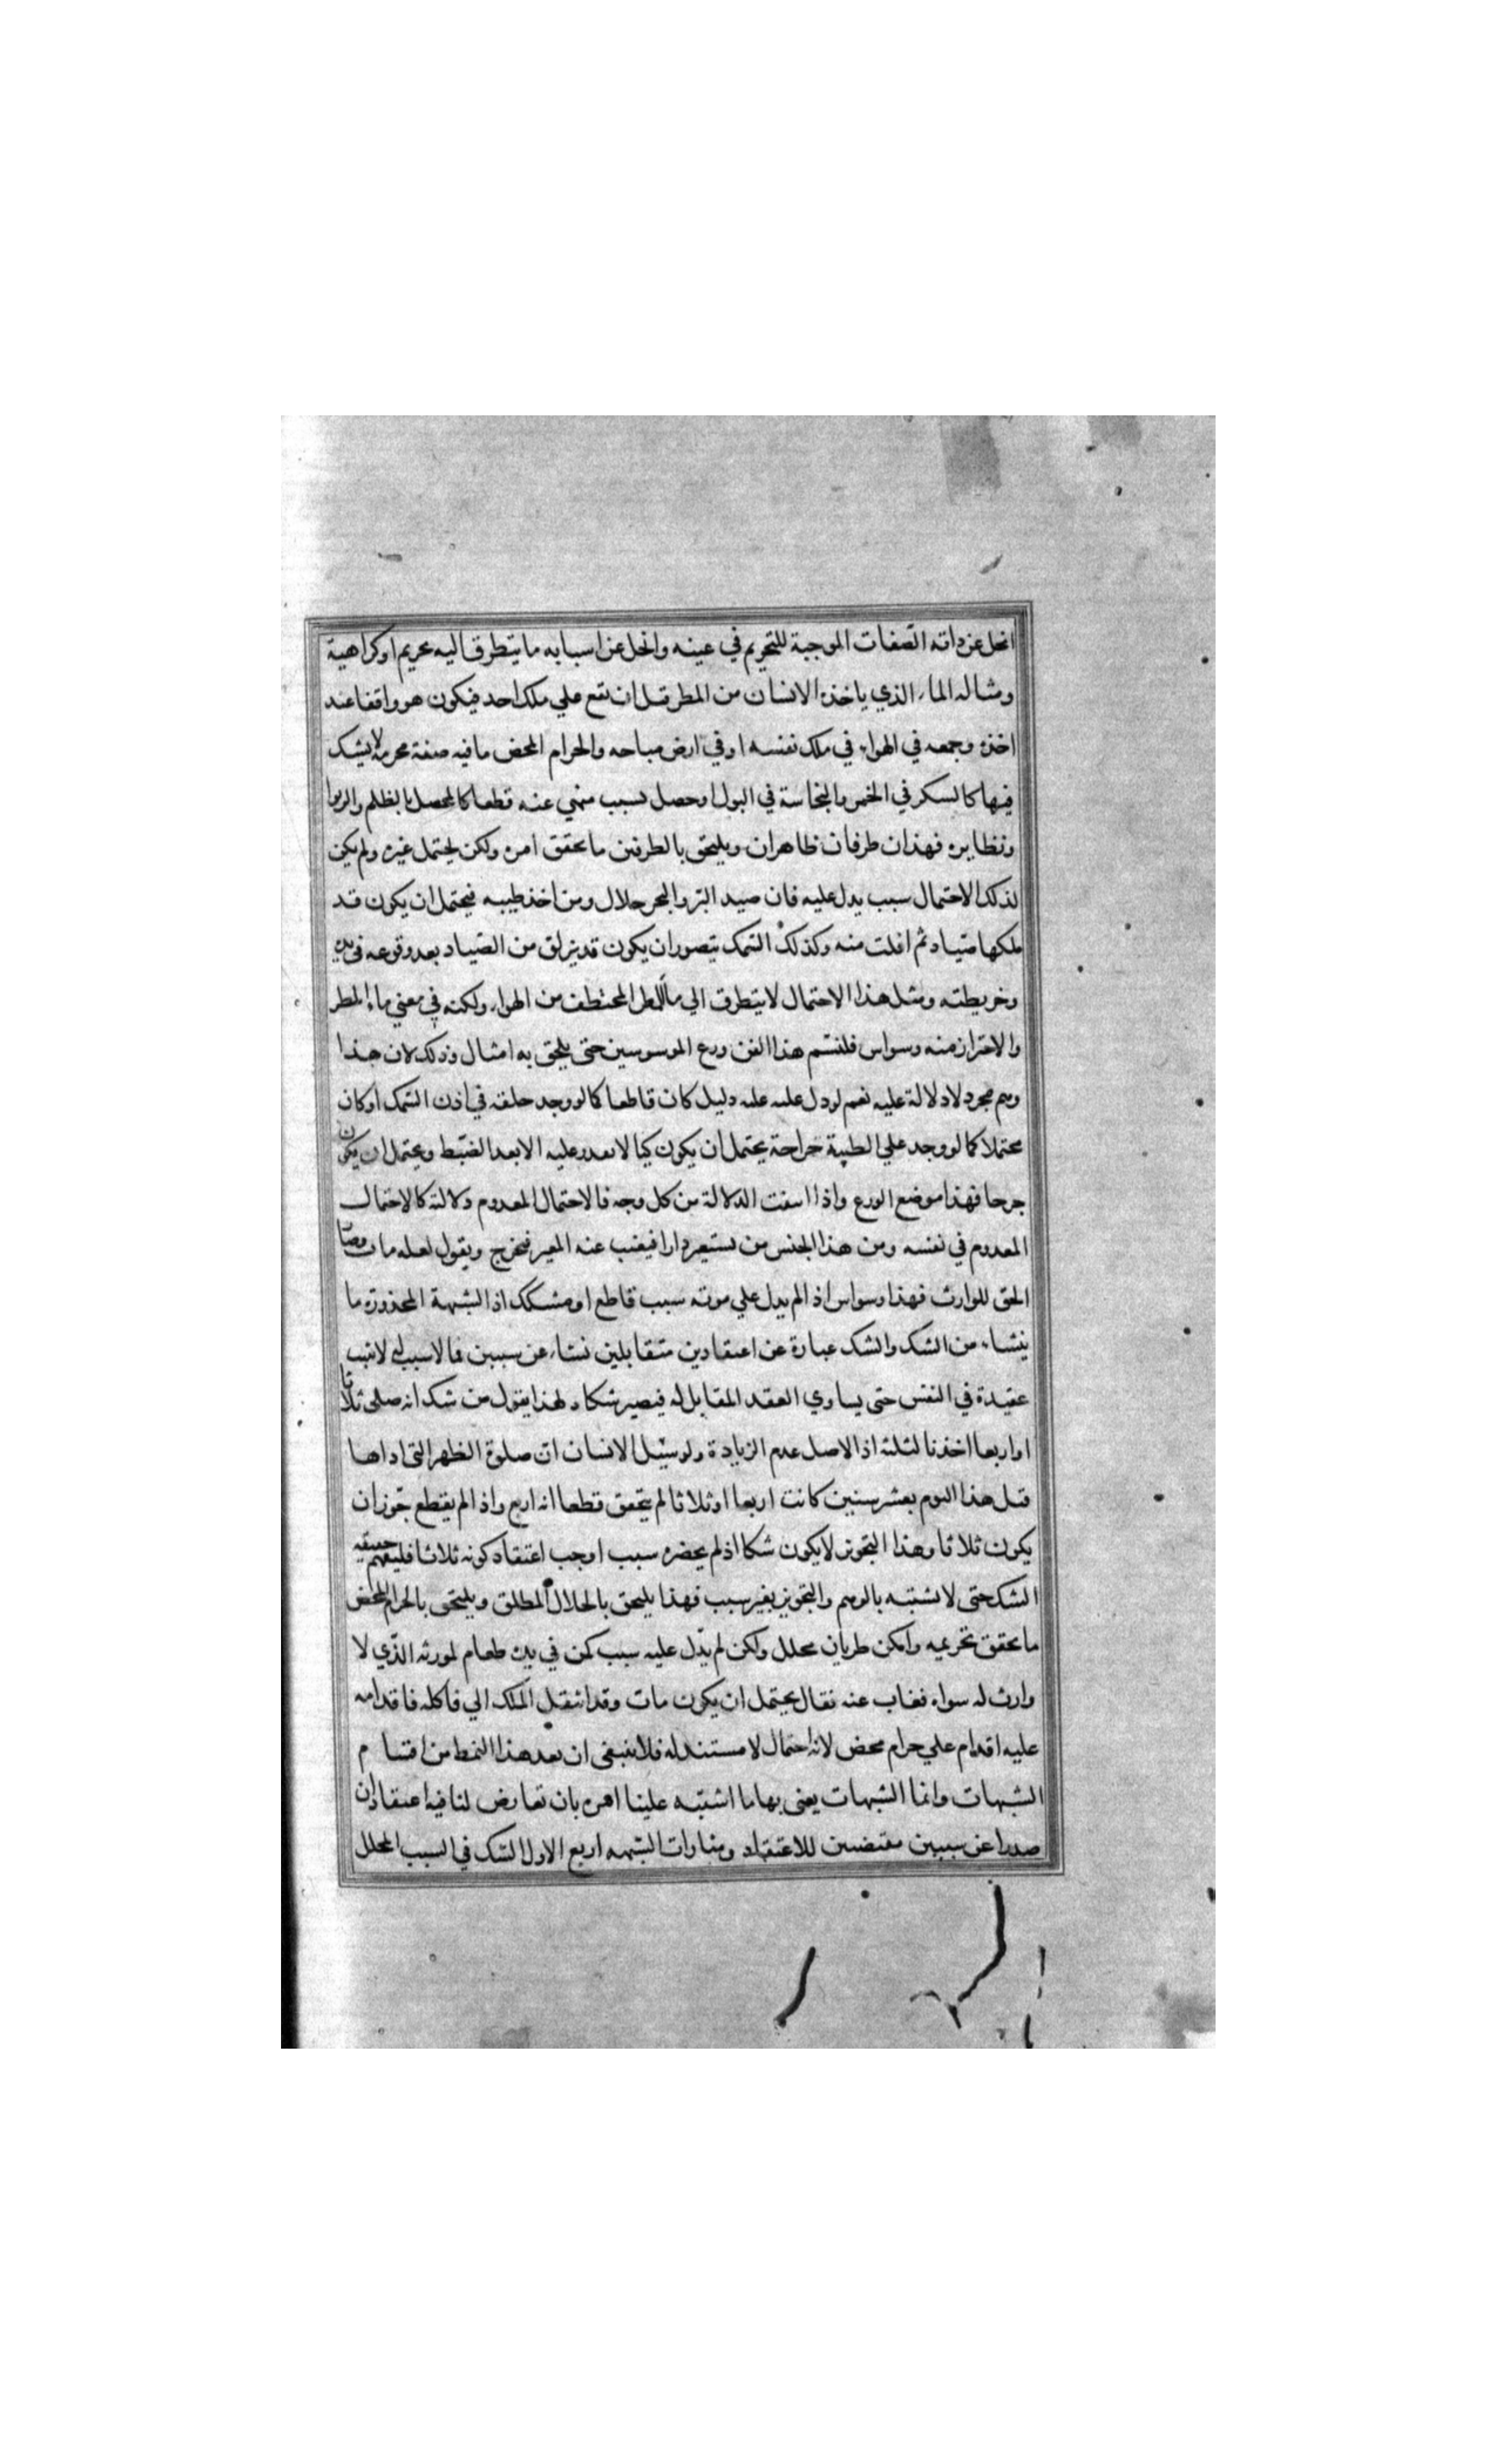 انحل عن ذاته الصّفات الموجبة للتحريم في عينه وانحل عن اسبابه ما يتطرق اليه تحريم او كراهية
ومثاله الماء الذي ياخذه الانسان من المطر قبل ان يقع علي ملك احد فيكون هو واقفا عند
اخذه وجمعه في الهواء في ملك نفسه او في ارض مباحه والحرام المحض ما فيه صفة محرمة لا يشك
فيها كالسكر في الخمر والنجاسة في البول او حصل بسبب منهي عنه قطعا كالمحصل بالظلم والربوا
ونظايره فهذان طرفان ظاهران ويلتحق بالطرفين ما تحقق امره ولكن يحتمل غيره ولم يكن
لذلك الاحتمال سبب يدل عليه فان صيد البرّ والبحر حلال ومن اخذ ظبيه فيحتمل ان يكون قد
ملكها صيّاد ثم افلت منه وكذلك السّمك يتصور ان يكون قد يزلق من الصّياد بعد وقوعه في يده
وخريطته ومثل هذا الاحتمال لا يتطرق الي ماء المطر المختطف من الهواء ولكنه في معني ماء المطر
والاحتراز منه وسواس فلنسم هذا الفن ورع الموسوسين حتى يلحق به امثال وذلك لان هذا
وهم مجرد لا دلالة عليه نعم لو دل عليه عليه دليل كان قاطعا كما لو وجد حلقه في اذن السّمك او كان
محتملا كما لو وجد علي الظبية جراحة يحتمل ان يكون كيا لا يقدر عليه الا بعد الضبط ويحتمل ان يكون
جرحا فهذا موضع الورع واذا انتفت الدّلالة من كل وجه فالاحتمال المعدوم دلالته كالاحتمال
المعدوم في نفسه ومن هذا الجنس من يستعير دارا فيغيب عنه المعير فيخرج ويقول لعله مات وصار
الحق للوارث فهذا وسواس اذ لم يدل علي موته سبب قاطع او مشكك اذ الشبهة المحذورة ما
ينشاء من الشك والشك عبارة عن اعتقادين متقابلين نشاء عن سببين فما لا سبب له لا يثبت
عقيدة في النفس حتى يساوي العقد المقابل له فيصير شكا ولهذا يقول من شك انه صلى ثلاثا
او اربعا اخذ بالثلثة اذ الاصل عدم الزيادة ولو سيّل الانسان انّ صلوة الظهر التي اداها
قبل هذا اليوم بعشر سنين كانت اربعا او ثلاثا لم يتحقق قطعا انه اربع واذا لم يقطع جوّز ان
يكون ثلاثا وهذا التجويز لا يكون شكا اذ لم يحضره سبب اوجب اعتقاد كونه ثلاثا فليفهم حقيقه
الشك حتى لا يشتبه بالوهم والتجويز بغير سبب فهذا يلتحق بالحلال المطلق ويلتحق بالحرام المحض
ما تحقق تحريمه وامكن طريان محلل ولكن لم يدّل عليه سبب كمن في يده طعام لمورثه الذّي لا
وارث له سواه فغاب عنه فقال يحتمل ان يكون مات وقد انتقل الملك الي فاكله فاقدامه
عليه اقدام علي حرام محض لانه احتمال لا مستند له فلا ينبغي ان يعد هذا النمط من اقسام
الشبهات وانما الشبهات يعني بها ما اشتبه علينا امره بان تعارض لنا فيه اعتقادان
صدرا عن سببين مقتضيين للاعتقاد ومثارات الشبهه اربع الاول الشك في السبب المحلل